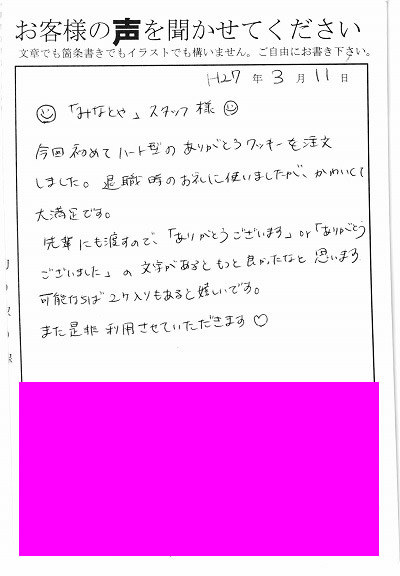 お客様の声を聞かせてください
文章でも箇条書きでもイラストでも構いません。ご自由にお書き下さい。
H27年3月11日
「みなとや」スタッフ様
今回初めてハート型のありがとうクッキーを注文
しました。退職時のお礼に使いましたが、かわいくて
大満足です。
先輩にも渡すので、「ありがとうございます」or「ありがとう
ございました」の文字があるともっと良かったなと思います
可能ならば2ケ入りもあると嬉しいです。
また是非利用させていただきます♡